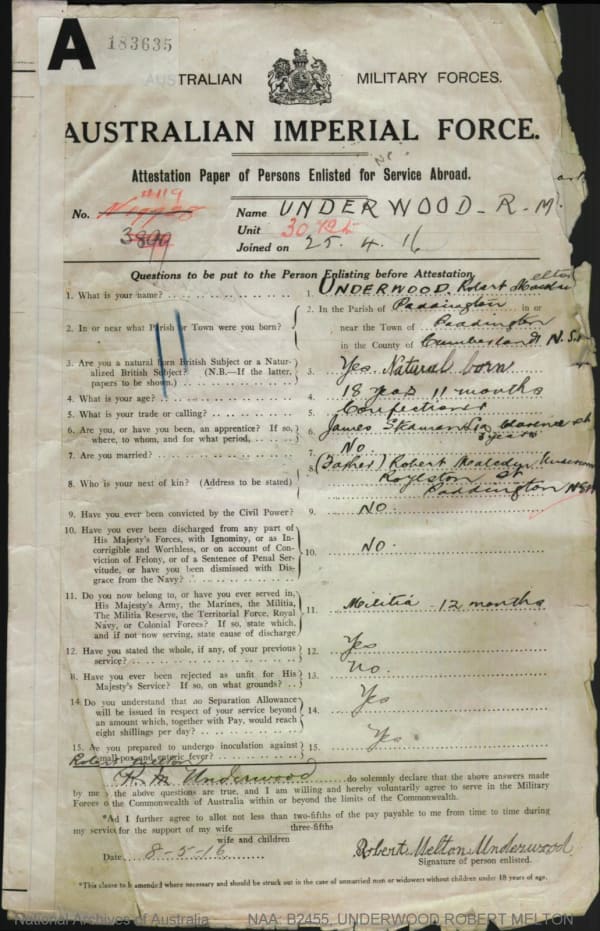 A
183635
AUSTRALIAN MILITARY FORCES.
AUSTRALIAN IMPERIAL FORCE.
Attestation Paper of Persons Enlisted for Service Abroad.
No. Name UNDERWOOD - R - M.
3800 Unit 30th
Joined on 25. 4. 16
Questions to be put to the Person Enlisting before Attestation.
1. What is your name? 1. UNDERWOOD, Robert Melton
2. In or near what Parish or Town were you born? 2. In the Parish of Paddington in or
near the Town of Paddington
in the County of Cumberland N.S.W
3. Are you a natural born British Subject or a Natur-
alized British Subject? (N.B.—If the latter, 3. Yes Natural born
papers to be shown.)
4. What is your age? 4. 18 years 11 months
5. What is your trade or calling? 5. Confectioner
6. Are you, or have you been, an apprentice? If so, 6. James
where, to whom, and for what period, 3 years
7. Are you married? 7. No.
8. Who is your next of kin? (Address to be stated) 8. (Father) Robert Underwood
Royleston St
Paddington NSW
9. Have you ever been convicted by the Civil Power? 9. NO.
10. Have you ever been discharged from any part of
His Majesty's Forces, with Ignominy, or as In-
corrigible and Worthless, or on account of Con- 10. NO.
viction of Felony, or of a Sentence of Penal Ser-
vitude, or have you been dismissed with Dis-
grace from the Navy?
11. Do you now belong to, or have you ever served in,
His Majesty's Army, the Marines, the Militia, 11. Militia - 12 months
The Militia Reserve, the Territorial Force, Royal
Navy, or Colonial Forces? If so, state which,
and if not now serving, state cause of discharge
12. Have you stated the whole, if any, of your previous 12. Yes
service?
13. Have you ever been rejected as unfit for His 13. No.
Majesty's Service? If so, on what grounds?
14. Do you understand that no Separation Allowance
will be issued in respect of your service beyond 14. Yes
an amount which, together with Pay, would reach
eight shillings per day?
15. Are you prepared to undergo inoculation against 15. Yes
small-pox and enteric fever?
Robert Melton
R. M Underwood do solemnly declare that the above answers made
by me the above questions are true, and I am willing and hereby voluntarily agree to serve in the Military
Forces o the Commonwealth of Australia within or beyond the limits of the Commonwealth.
*Ad I further agree to allot not less than two-fifths of the pay payable to me from time to time during
three-fifths
my service for the support of my wife
wife and children
Date 8-5-16 Robert Melton Underwood
Signature of person enlisted.
*This clause to be amended where necessary and should be struck out in the case of unmarried men or widowers without children under 18 years of age.
National Archives of Australia NAA: B2455, UNDERWOOD ROBERT MELTON